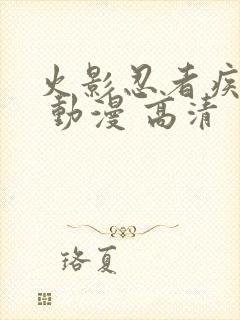 火影忍者疾
動漫 高清
珞夏